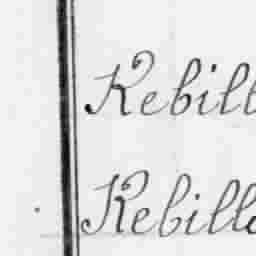 Kebill
Kebill